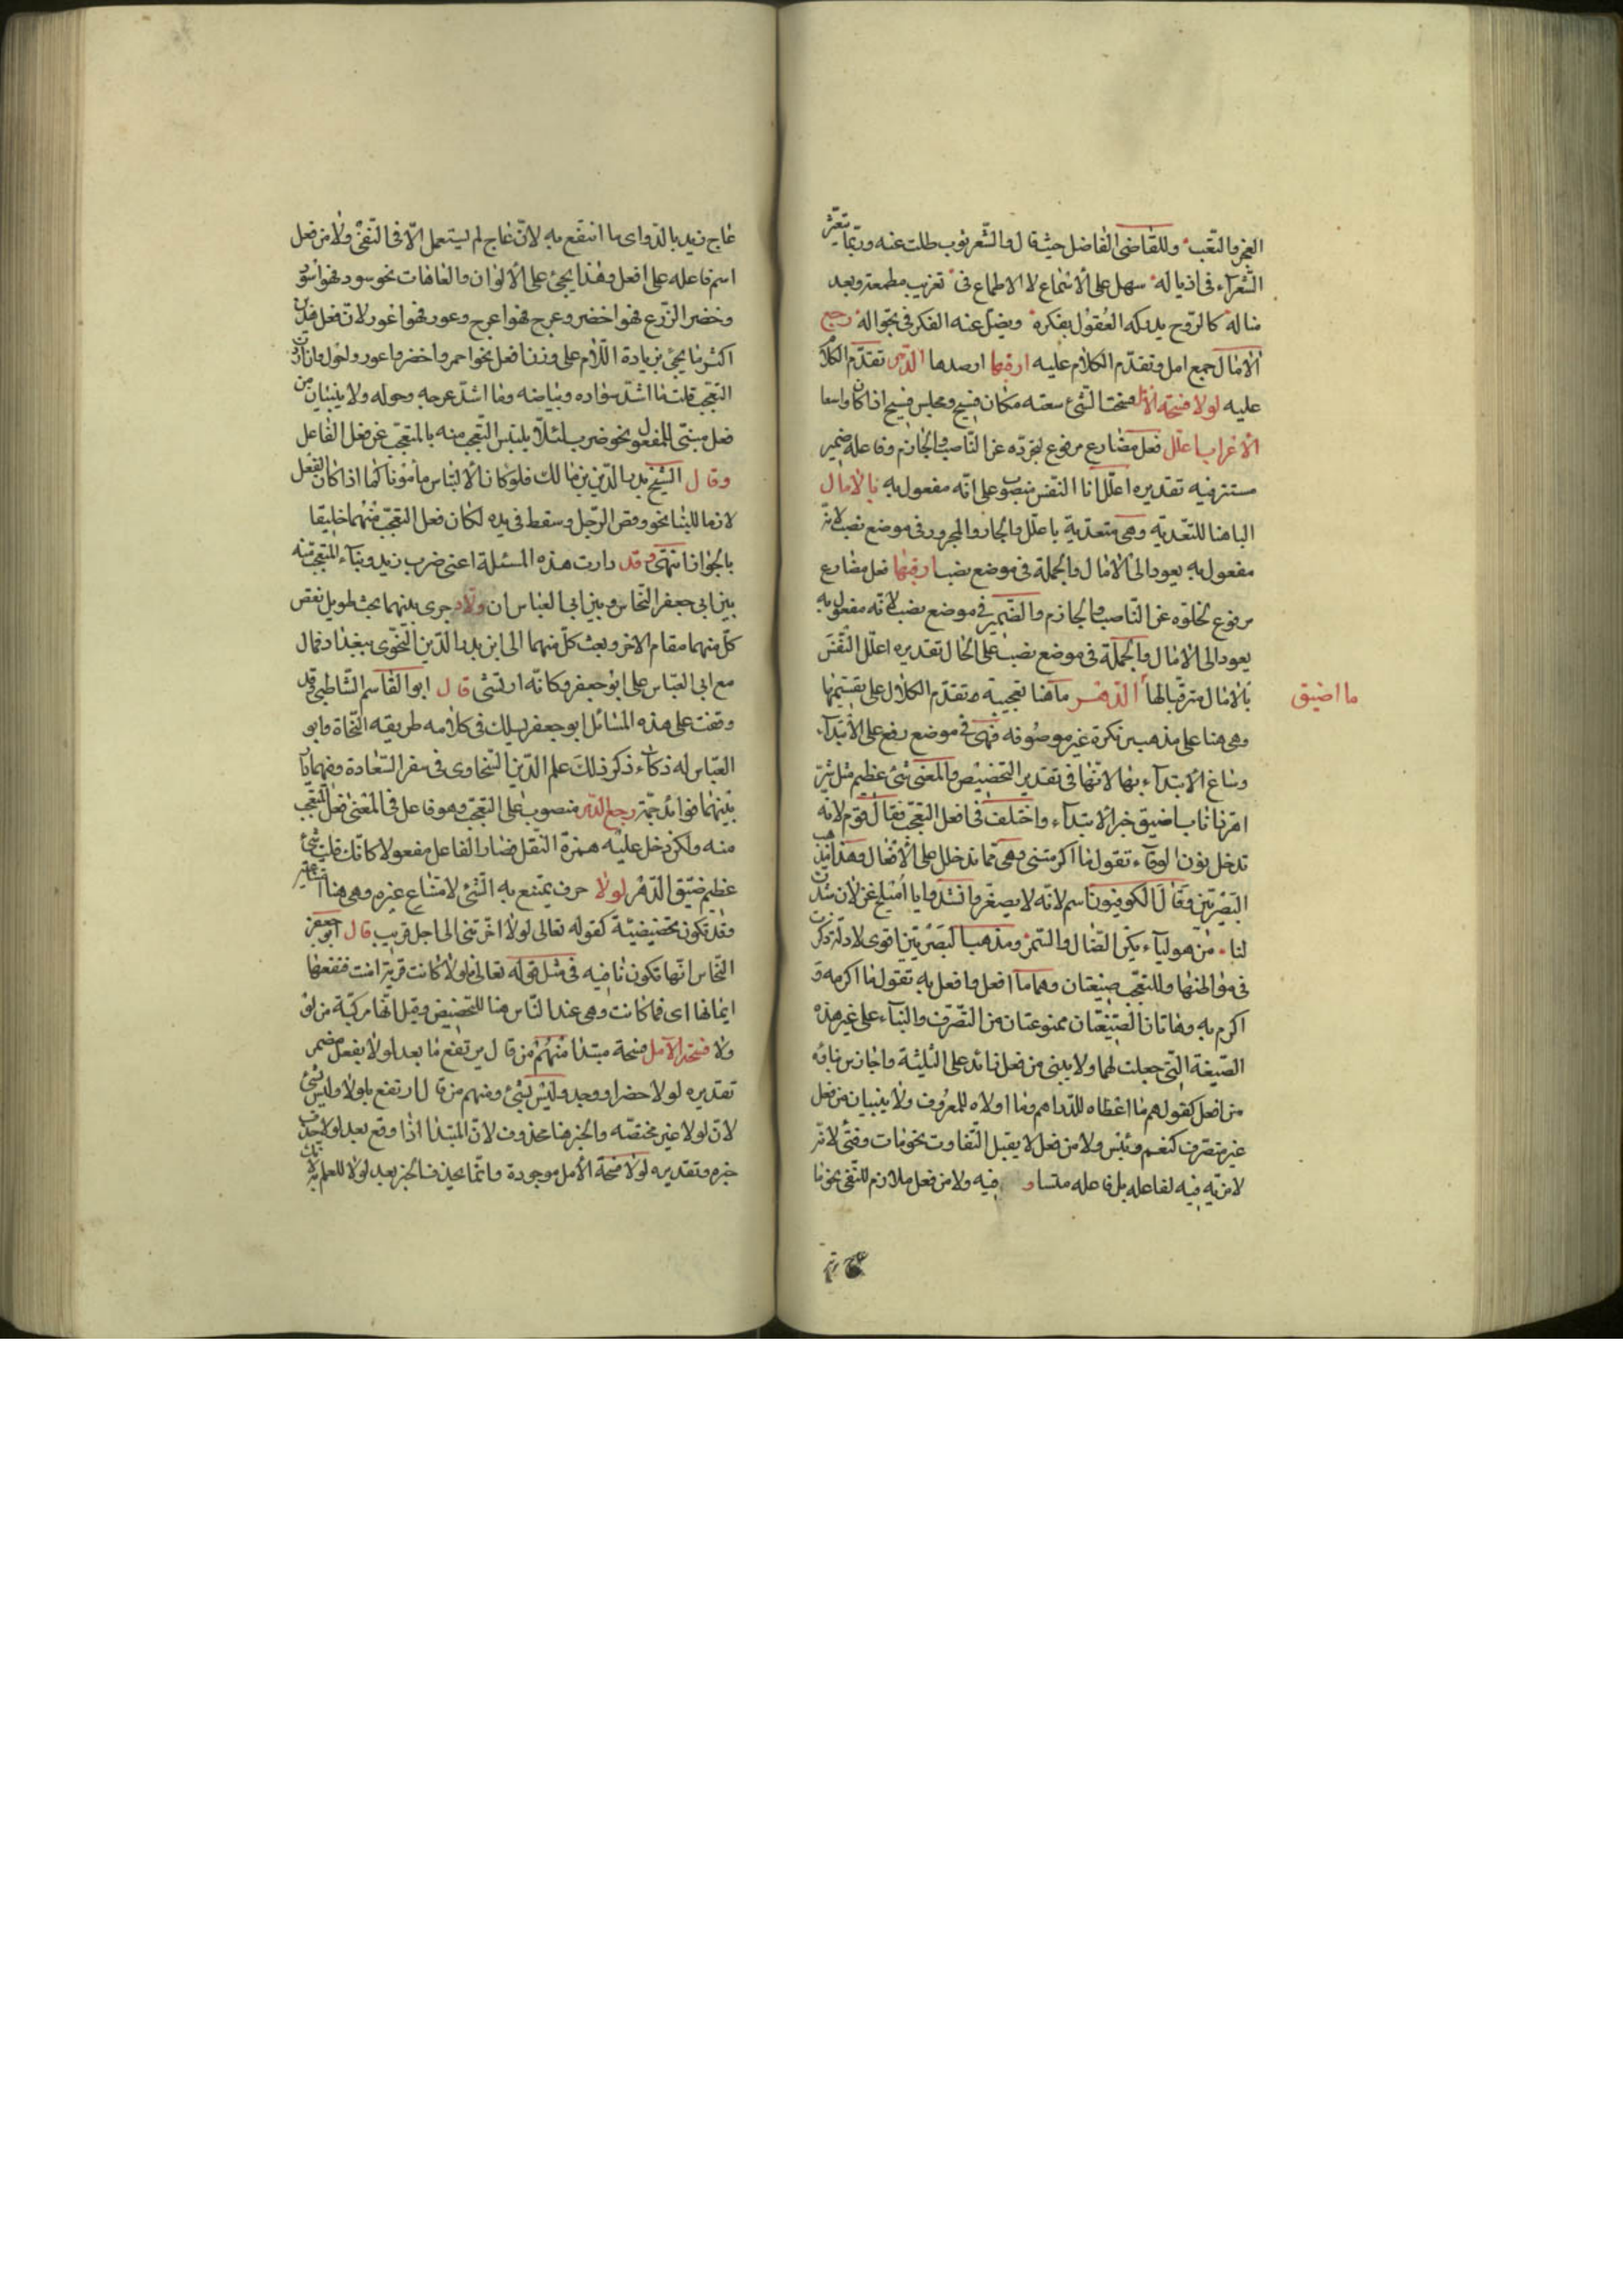 العجز والتعب وللقاضى الفاضل حيث قال والشعر ثوب طلت عنه وربما تعثر
الشعرآء فى اذياله سهل على الاسماع لا الاطماع فى تغريب مطمعة وبعد
مناله كالروح يدركه العقول بفكرة ويضل عنه الفكر فى تجواله رجع
الامال جمع امل وتقدم الكلام عليه ارقبها ارصدها الدهر تقدم الكلام
عليه لولا فسحة الامل فسحت الشئ سعته مكان فسيح ومجلس فسيح اذا كان واسعا
الاعراب اعلل فعل مضارع مرفوع لتجرده عن الناصب والجازم وفاعله ضمير
مستتر فيه تقديره اعلل انا النفس منصوب على انه مفعول به بالامال
الباهنا للتعدية وهى متعدية باعلل والجار والمجرور فى موضع نصب لانه
مفعول به يعود الى الامال والجملة فى موضع نصب ارقبها فعل مضارع
مرفوع لخلوه عن الناصب والجازم والضمير فى موضع نصب لانه مفعول به
يعود الى الامال والجملة فى موضع نصب على الحال تقديره اعلل النفس
بالامال مترقبا لها الدهر ما هنا تعجبية وتقدم الكلام على تقسيمها
ما اضيق
وهى هنا على مذهب س نكرة غير موصوفه فهى فى موضع رفع على الابتدآء
وساغ الابتدآء بها لانها فى تقدير التخصيص والمعنى شئ عظيم مثل شر
اهر ذا ناب اضيق خبر الابتدآء واختلف فى افعل التعجب فقال قوم لانه
تدخل نون الوقآء تقول ما اكرمتنى وهى مما تدخل على الافعال وهذا مذهب
البصريين وقال الكوفيون اسم لانه لا يصغر وانشدوا يا اميلح غزلان شدن
لنا من هوليآء يكن الضال والسمر ومذهب البصريين اقوى لادلة ذكرت
فى مواطنها وللتعجب صيغتان وهما ما افعل وافعل به تقول ما اكرمه و
اكرم به وهاتان الصيغتان ممنوعتان من التصرف والبنآء على غير هذه
الصيغة التى جعلت لهما ولا يبنى من فعل زائد على الثلثة واجاز س بناؤه
من افعل كقولهم ما اعطاه للدراهم وما اولاه للمعروف ولا يبنيان من فعل
غير متصرف كنعم وبئس ولا من فعل لا يقبل التفاوت نحو مات وفنى لانه
لا مزية فيه لفاعله بل فاعله متساو فيه ولا من فعل ملازم للنفى نحو ما
عاج زيد بالدواى ما انتفع به لان عاج لم يستعمل الا فى النفى ولا من فعل
اسم فاعله على افعل وهذا يجئ على الالوان والعاهات نحو سود فهو اسود
وخضر الزرع فهو اخضر وعرج فهو اعرج وعور فهو اعور لان فعل هذين
اكثر ما يجئ بزيادة اللام على وزن افعل نحو احمر واخضر واعور واحول وان اردت
التعجب قلت ما اشد سواده وبياضه وما اشد عرجه وحوله ولا يبنيان من
فعل مبنى للمفعول نحو ضرب لئلا يلتبس التعجب منه بالتعجب عن فعل الفاعل
وقال الشيخ بدر الدين بن مالك فلو كان الالتباس مأمونا كما اذا كان الفعل
لازما للبنا نحو وقص الرجل وسقط فى يده لكان فعل التعجب منهما خليقا
بالجواز انتهى وقد دارت هذه المسئلة اعنى ضرب زيد وبنآء المتعجب منه
بين ابى جعفر النحاس وبين ابى العباس ان ولاد جرى بينهما بحث طويل نقض
كل منهما مقام الاخر وبعث كل منهما الى ابن بدر الدين النحوى ببغداد فمال
مع ابى العباس على ابو جعفر وكانه ارتشى قال ابو القاسم الشاطبى قد
وقفت على هذه المسائل ابو جعفر يسلك فى كلامه طريقه النحاة وابو
العباس له ذكآء ذكر ذلك علم الدين السخاوى فى سفر السعادة وفيهما يأت
بينهما فوائد جمة رجع الدهر منصوب على التعجب وهو فاعل فى المعنى فعل التعجب
منه ولكن دخل عليه همزة النقل فصار الفاعل مفعولا كانك قلت شئ
عظيم ضيق الدهر لولا حرف يمتنع به الشئ لامتناع غيره وهى هنا امتناعية
وقد تكون تحضيضية كقوله تعالى لولا اخرتنى الى اجل قريب قال ابو جعفر
النحاس انها تكون نافيه فى مثل قوله تعالى فلولا كانت قرية امنت فنفعها
ايمانها اى فما كانت وهى عند الناس هنا للتحضيض وقيل انها مركبة من لو
ولا فسحة الامل فسحة مبتدا منهم من قال يرتفع ما بعد لولا بفعل مضمر
تقديره لولا حضر او وجد وليس بشئ ومنهم من قال ارتفع بلولا وليس بشئ
لان لولا غير مختصه والخبر هنا محذوف لان المبتدا اذا وقع بعد لولا حذف
خبره وتقديره لولا فسحة الامل موجودة وانما يحذف الخبر بعد لولا للعلم به